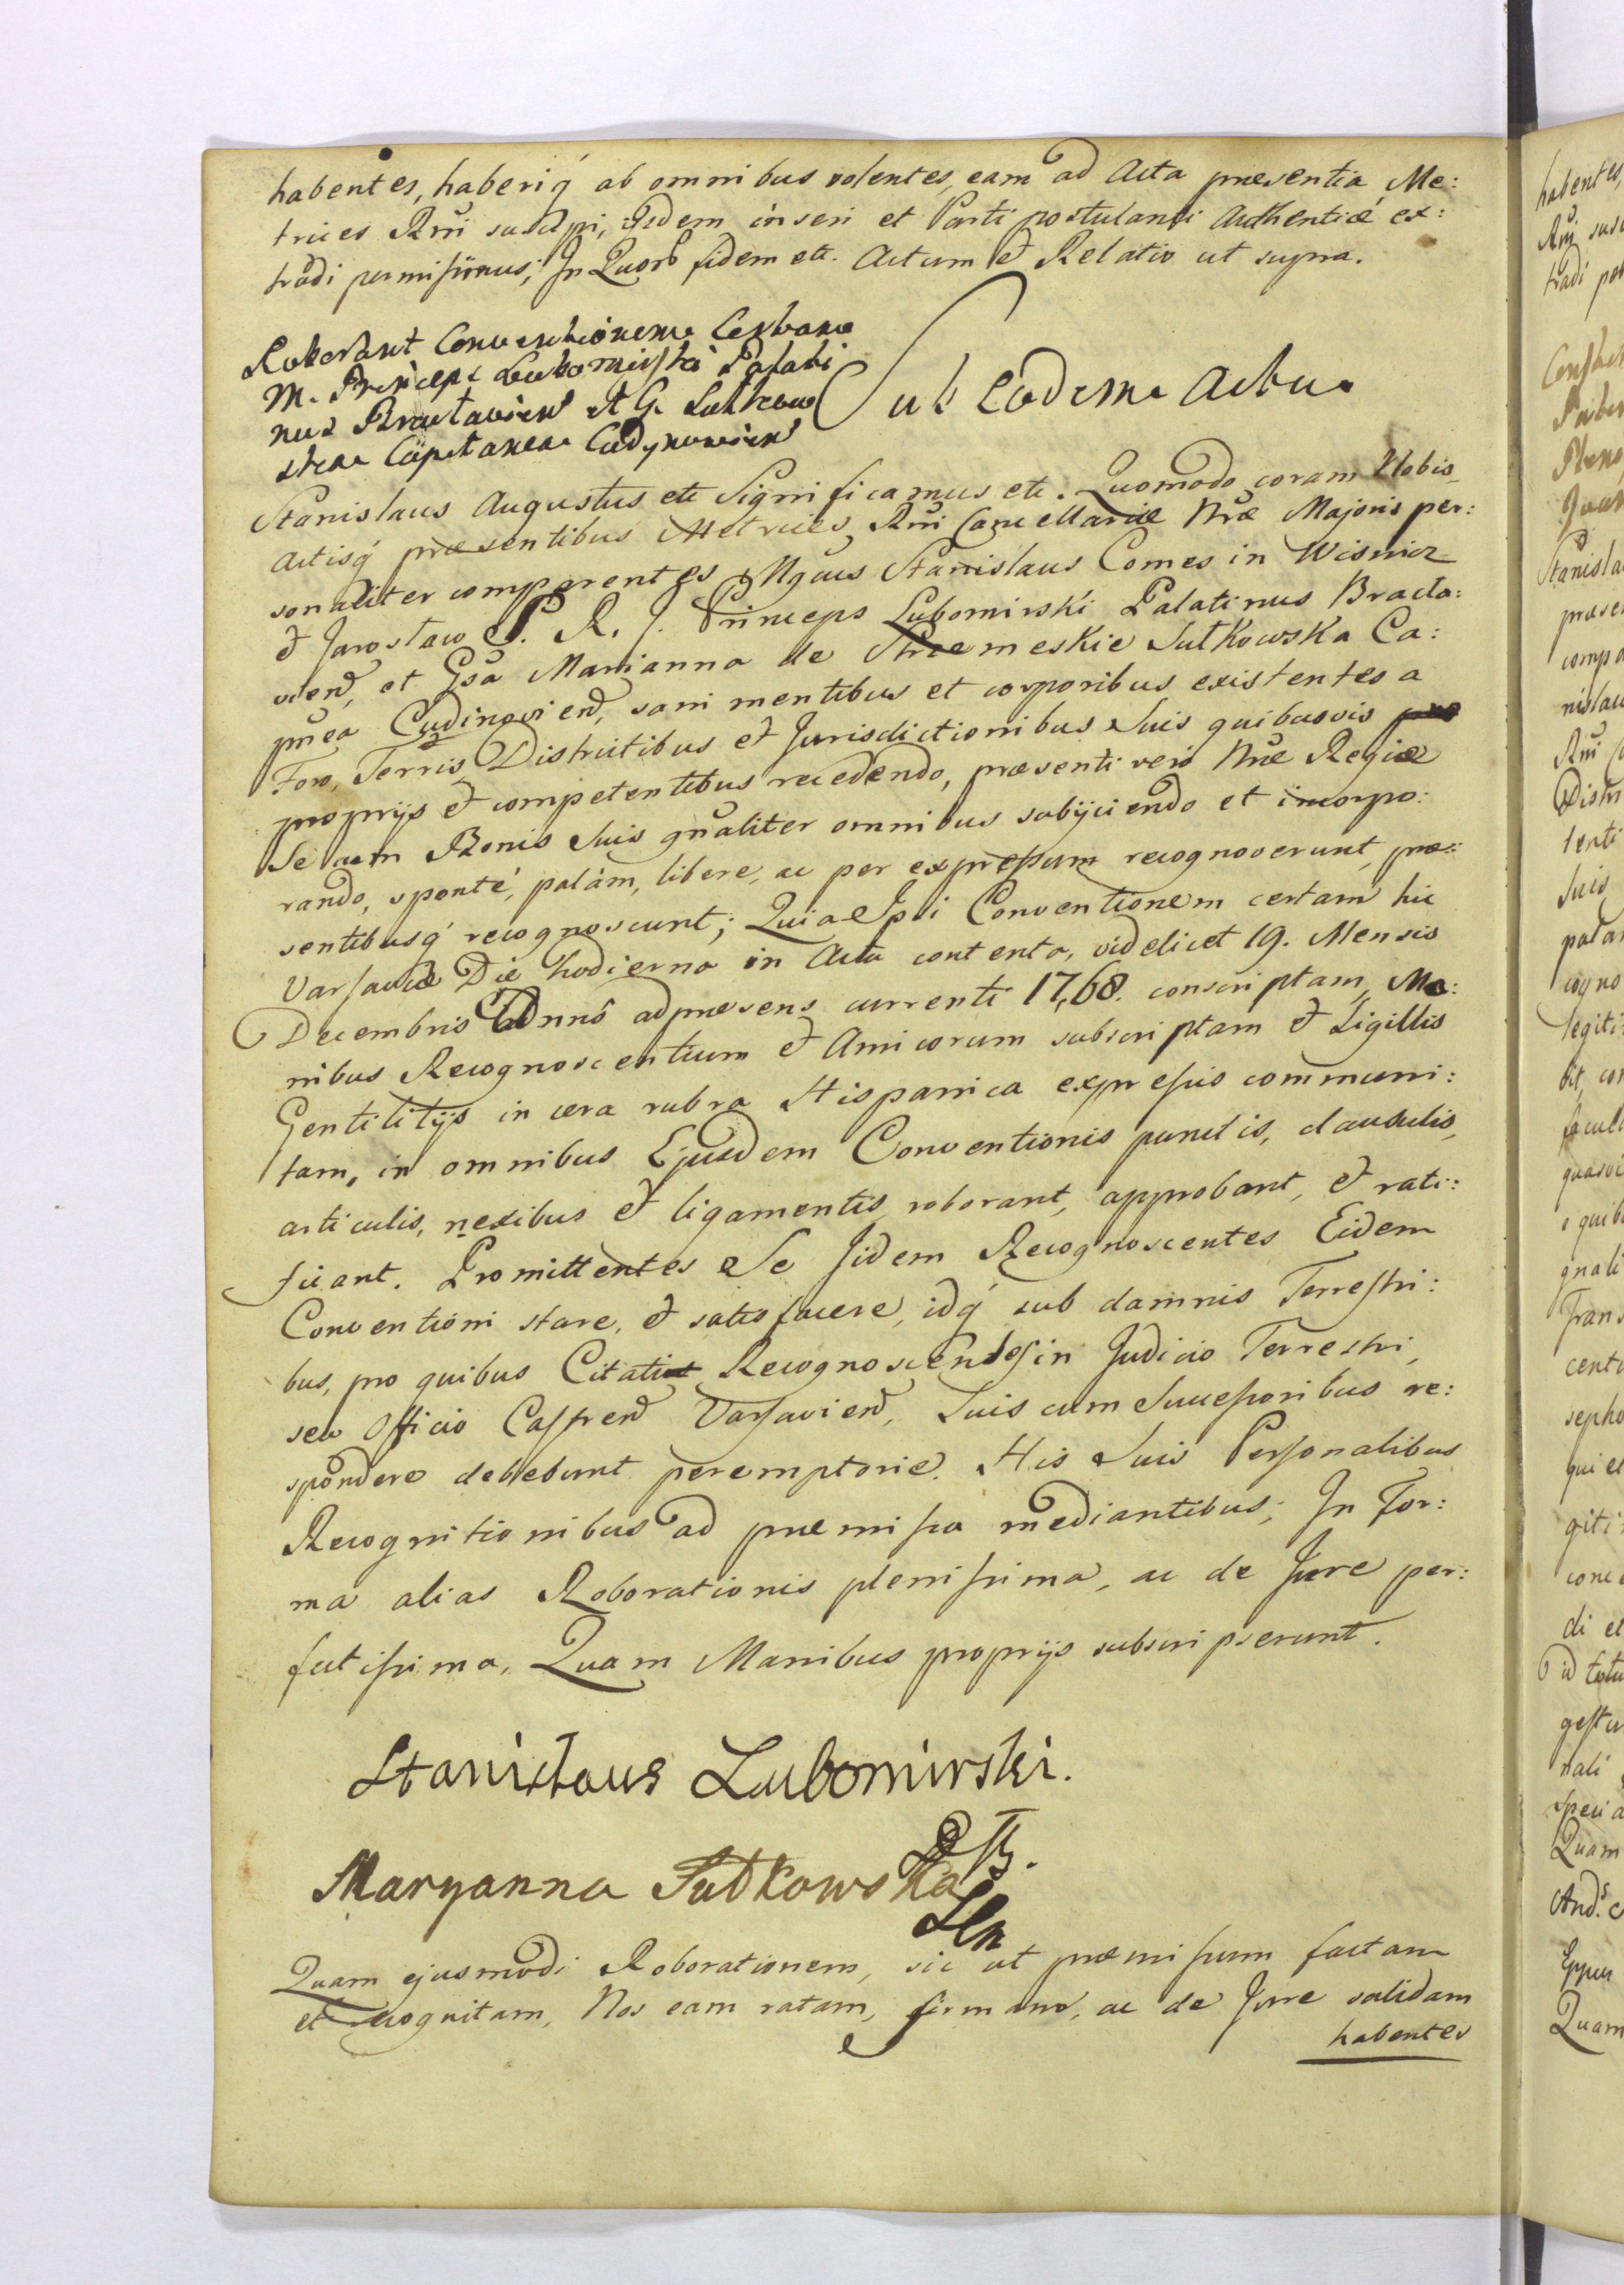 habentes, haberiq́ ab omnibus volentes, eam ad Acta præsentia Me:
trices Rñi suscipi, ijsdem inseri et Parti postulanti Authenticè ex:
tradi permisimus; In Quorũ fidem etc. Actum et Relatio ut supra.
Roborant Conventionem Certam
M. Princeps Lubomirski Palati
nus Braclavien et G. Sulkow
ska Capitanea Cudynovien
Sub Eodem Actu.
Stanislaus Augustus etc Significamus etc. Quomodo coram Nobis
Actisq́ præsentibus Metrices Rñi Cancellariæ Nræ Majoris per:
sonaliter comparentes Mgcus Stanislaus Comes in Wisnicz
et Jaroslaw S. R. J. Princeps Lubomirski Palatinus Bracla:
vien, et Gsa Marianna de Sulkowska Ca:
pnea Cudinovien, sani mentibus et corporibus existentes a
Foro, Terris, Districtibus et Jurisdictionibus Suis quibusvis
proprijs et competentibus recedendo, præsenti vero Nræ Regiæ
Se cum Bonis Suis gñaliter omnibus subijciendo et incorpo:
rando, sponté, palàm, libere, ac per expressum recognoverunt, præ:
sentibusq́ recognoscunt; Quia Ipsi Conventionem certam hic
Varsaviæ Die hodierna in Actu contenta, videlicet 19. Mensis
Decembris Annô ad præsens currenti 1768. conscriptam, Ma:
nibus Recognoscentium et Amicorum subscriptam et Sigillis
Gentilitijs in cera rubra Hispanica expressis communi:
tam, in omnibus Ejusdem Conventionis punctis, clausulis,
articulis, nexibus et ligamentis roborant, approbant, et rati:
ficant. Promittentes Se Iidem Recognoscentes Eidem
Conventioni stare, et satisfacere, idq́ sub damnis Terrestri:
bus, pro quibus Citati Recognoscentes in Judicio Terrestri,
seu Officio Castren Varsavien, Suis cum Successoribus re:
spondere debebunt peremptorie. His Suis Personalibus
Recognitionibus ad præmissa mediantibus; In For:
ma alias Roborationis plenissima, ac de Jure per:
fectissima, Quam Manibus proprijs subscripserunt.
Stanislaus Lubomirski.
Maryanna Sułkowska
Quam ejusmodi Roborationem, sic ut præmissum factam
et recognitam, Nos eam ratam, firmam, ac de Jure validam
habentes